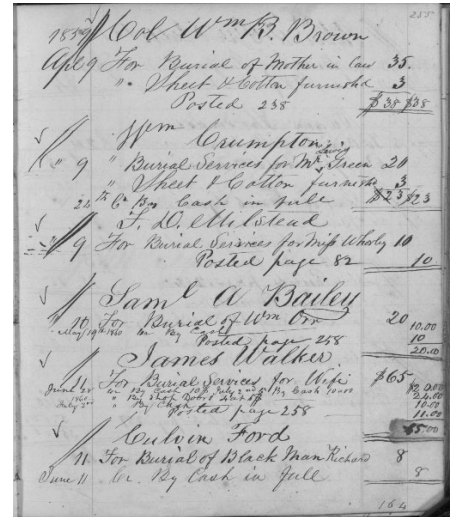 255
1859 Col Wm B. Brown
Apl 9 For Burial of Mother in law 35.
" Sheet & Cotton furnishd 3
Posted 238 $38 $38
Wm Crumpton
" 9 " Burial Services for Mr Green 20
" Sheet & Cotton furnishd 3
22 Cr By Cash in full $23 $23
T. D. Milstead
9 For Burial Services for Miss Whorly 10
Posted page 82 10
Saml A Bailey
10 For Burial of Wm Orr 20
May 19th 1860 Cr By Cash 10.00
Posted page 258 10
20.00
James Walker
June For Burial Services for Wife $65
Cr By Cash 10 July 2nd By Cash 10.00
1860 " By Shop 24.00
July 2nd " By Cash 10.00
Posted page 258 11.00
65.00
Culvin Ford
11 For Burial of Black Man Richard 8
June 11 Cr. By Cash in full 8
164